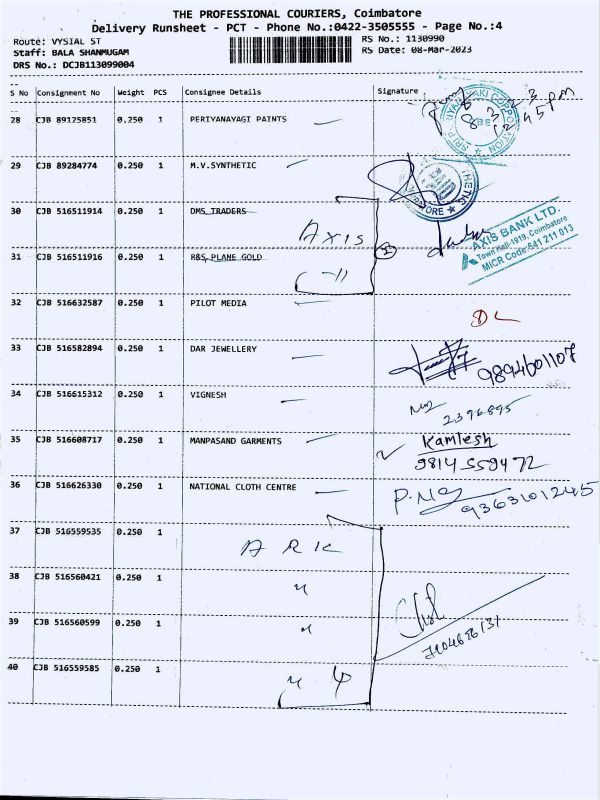 THE PROFESSIONAL COURIERS, Coimbatore
Delivery Runsheet - PCT - Phone No.:0422-3505555 - Page No.:4
Route: VYSIAL ST
RS No.: 1130990
Staff: BALA SHANMUGAM
RS Date: 08-Mar-2023
DRS No.: DCJB113099004
S No Consignment No Weight PCS Consignee Details Signature
28 CJB 89125851 0.250 1 PERIYANAYAGI PAINTS
8 3 23
12 45 pm
29 CJB 89284774 0.250 1 M.V.SYNTHETIC
30 CJB 516511914 0.250 1 DMS TRADERS
Axis
AXIS BANK LTD.
Town Hall-1919, Coimbatore
MICR Code:641 211 013
31 CJB 516511916 0.250 1 R&S PLANE GOLD
-11
2
32 CJB 516632587 0.250 1 PILOT MEDIA
33 CJB 516582894 0.250 1 DAR JEWELLERY
9894601107
34 CJB 516615312 0.250 1 VIGNESH
2396895
35 CJB 516608717 0.250 1 MANPASAND GARMENTS
Kamlesh
9814 559472
36 CJB 516626330 0.250 1 NATIONAL CLOTH CENTRE
9363101245
37 CJB 516559535 0.250 1
ARK
38 CJB 516560421 0.250 1 "
39 CJB 516560599 0.250 1 "
40 CJB 516559585 0.250 1 " 4